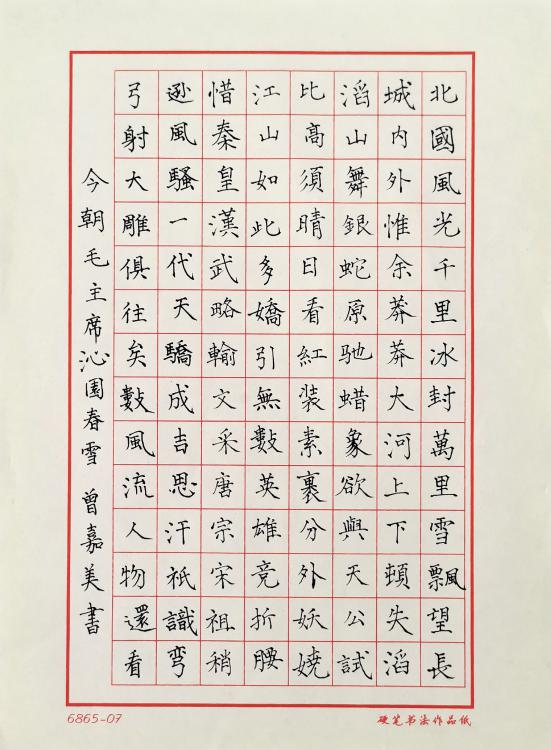 北國風光千里冰封萬里雪飄望長
城内外惟余莽莽大河上下頓失滔
滔山舞銀蛇原驰蜡象欲與天公試
比高須晴日看紅装素裹分外妖嬈
江山如此多嬌引無數英雄竞折腰
惜秦皇漢武略輸文采唐宗宋祖稍
遜風騷一代天驕成吉思汗祇識弯
弓射大雕俱往矣數風流人物還看
今朝毛主席沁園春雪 曾嘉美書
6865-07
硬笔书法作品纸